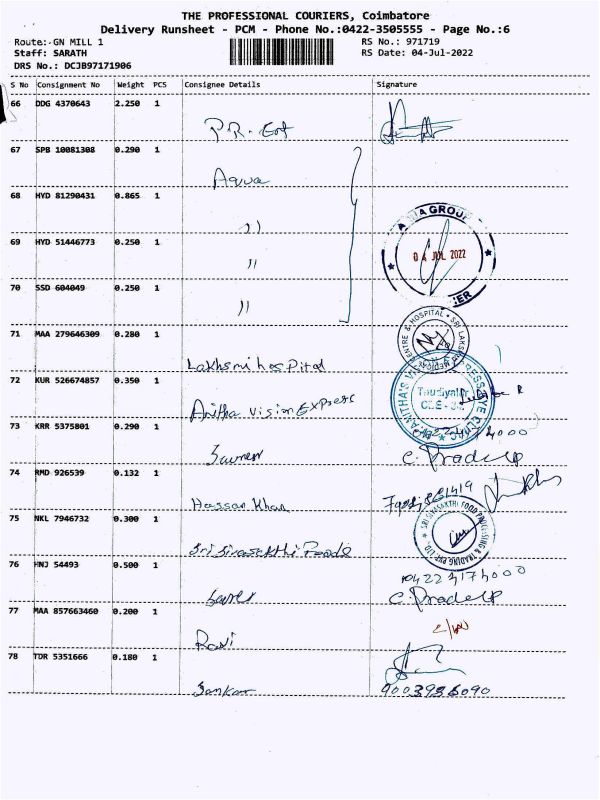 THE PROFESSIONAL COURIERS, Coimbatore
Delivery Runsheet - PCM - Phone No.:0422-3505555 - Page No.:6
Route:-GN MILL 1 RS No.: 971719
Staff: SARATH RS Date: 04-Jul-2022
DRS No.: DCJB97171906
S No Consignment No Weight PCS Consignee Details Signature
66 DDG 4370643 2.250 1
67 SPB 10081308 0.290 1
Aqua
68 HYD 81290431 0.865 1
''
69 HYD 51446773 0.250 1
''
04 JUL 2022
70 SSD 604049 0.250 1
''
71 MAA 279646309 0.280 1
Lakhsmi hospital
72 KUR 526674857 0.350 1
Anitha Vision Express
73 KRR 5375801 0.290 1
C. Pradeep
74 RMD 926539 0.132 1
Hassan Khan
75 NKL 7946732 0.300 1
SRI SIVASAKTHI FOOD PROCESSING & TRADING PVT. LTD.
Sri Sivasakthi Foods
76 HNJ 54493 0.500 1
C. Pradeep
77 MAA 857663460 0.200 1
Ravi
78 TDR 5351666 0.180 1
Sankar 9003936090